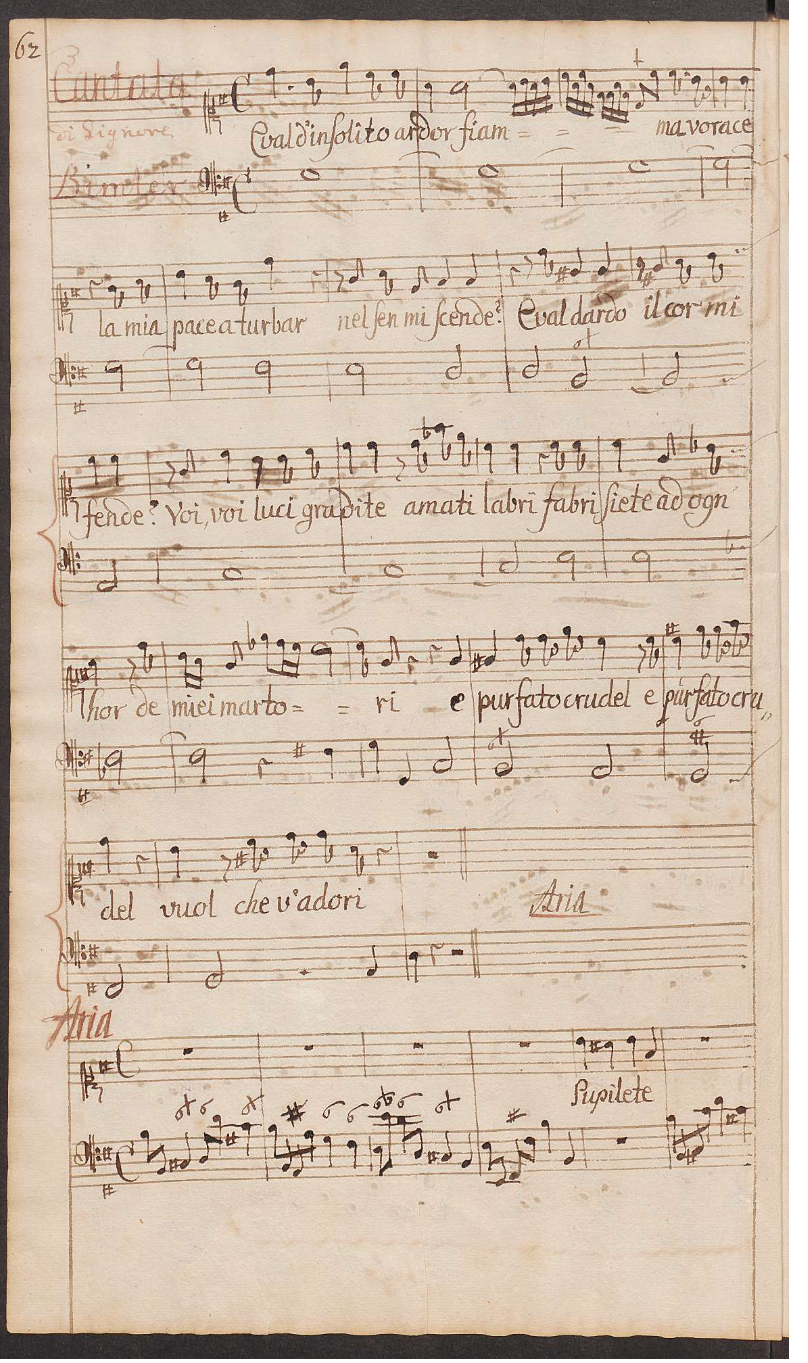 62
Cantata
di Signore
Bimler
E val d'insolito ardor fiam = = = ma vorace
la mia pace a turbar nel sen mi scende? E val dardo il cor mi
fende? Voi, voi luci gradite amati labri fabri siete ad ogn
'hor de miei marto = = ri e pur fato crudel e pur fato cru,,
del vuol che v'adori Aria
Aria
Pupilete